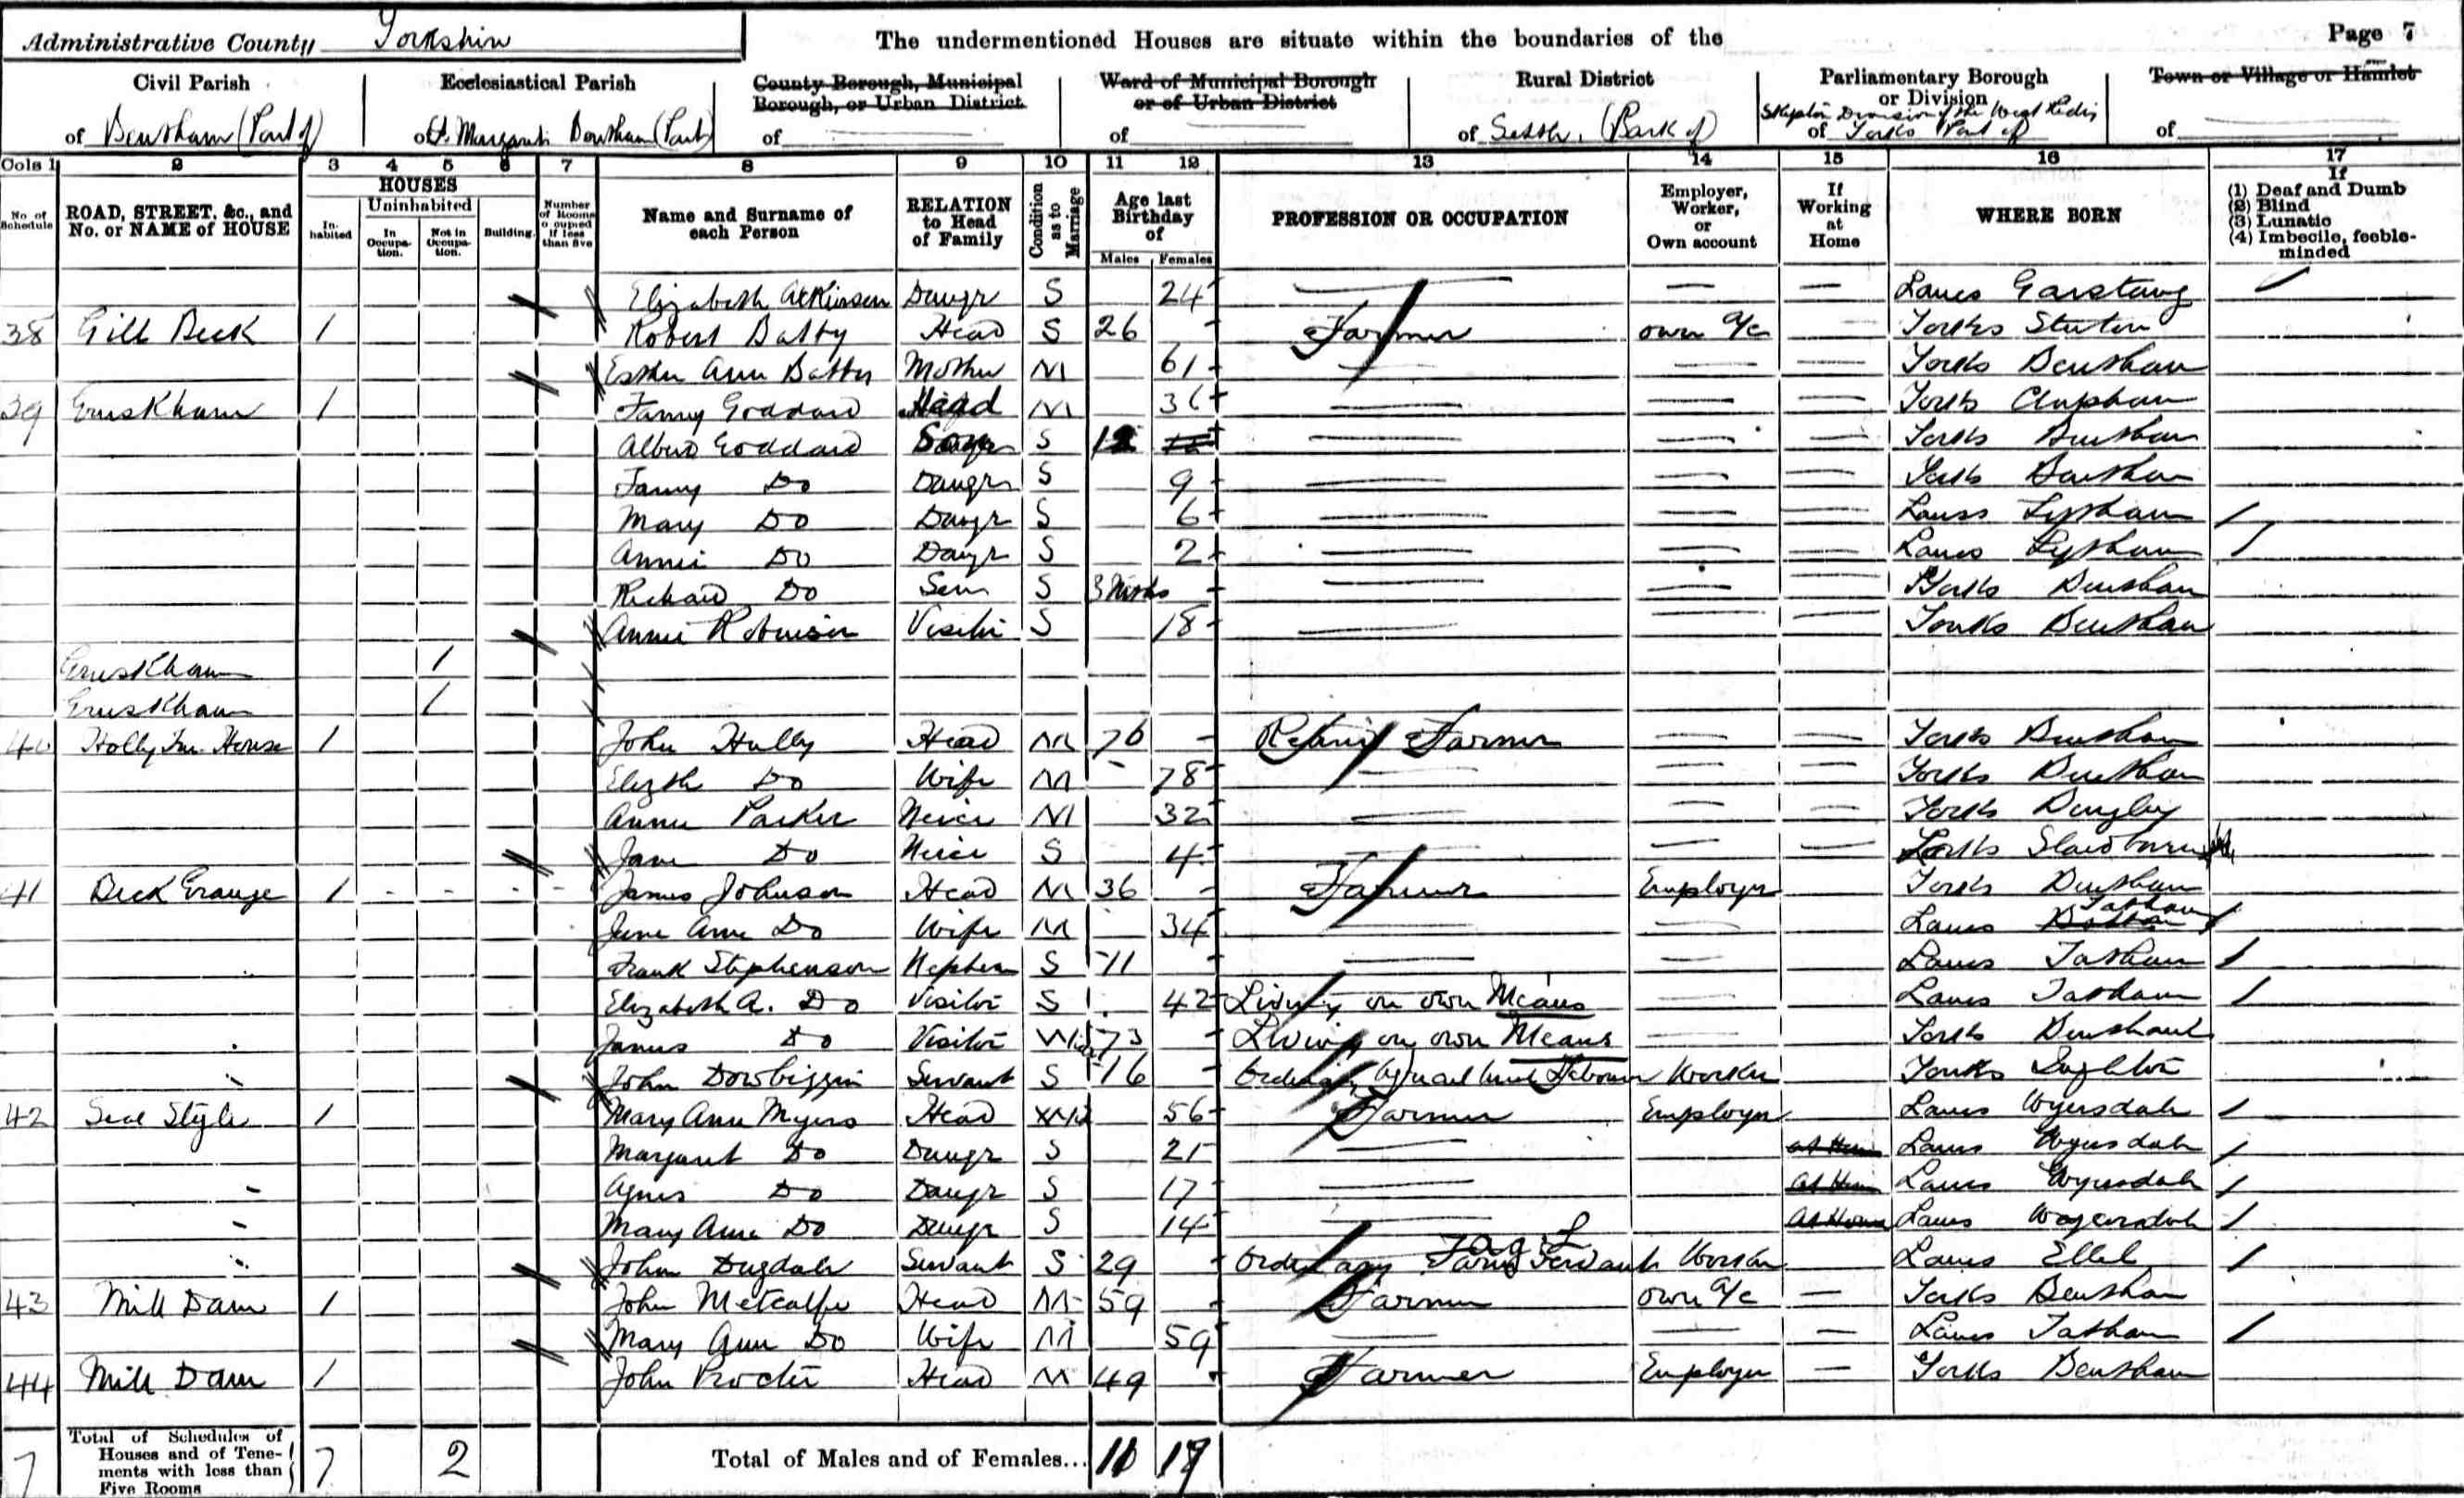 Administrative County Yorkshire
The undermentioned Houses are situate within the boundaries of the
Page 7
Civil Parish of Bentham (Part of)
Ecclesiastical Parish of St. Margarets Bentham (Part)
County Borough, Municipal Borough, or Urban District of
Ward of Municipal Borough or of Urban District of
Rural District of Settle (Part of)
Parliamentary Borough or Division of Skipton Division of the West Riding Yorks Part of
Town or Village or Hamlet of
Cols 1 2 3 4 5 6 7 8 9 10 11 12 13 14 15 16 17
No. of Schedule
ROAD, STREET, &c., and No. or NAME of HOUSE
HOUSES
Inhabited
Uninhabited
In Occupation.
Not in Occupation.
Building.
Number of Rooms occupied if less than five
Name and Surname of each Person
RELATION to Head of Family
Condition as to Marriage
Age last Birthday of
Males Females
PROFESSION OR OCCUPATION
Employer, Worker, or Own account
If Working at Home
WHERE BORN
If
(1) Deaf and Dumb
(2) Blind
(3) Lunatic
(4) Imbecile, feeble-minded
Elizabeth Atkinson Daugr S 24 Lancs Garstang
38 Gill Beck 1 Robert Batty Head S 26 Farmer own a/c Yorks
Esther Ann Batty Mother M 61 Yorks Bentham
39 1 Fanny Goddard Head M 36 Yorks Clapham
Albert Goddard Son S 12 Yorks Bentham
Fanny Do Daugr S 9 Yorks Bentham
Mary Do Daugr S 6 Lancs Lytham
Annie Do Daugr S 2 Lancs Lytham
Richard Do Son S 3 Mnths Yorks Bentham
Annie Robinson Visitor S 18 Yorks Bentham
1
1
40 House 1 John Hully Head M 76 Retired Farmer Yorks Bentham
Elizth Do Wife M 78 Yorks Bentham
Annie Parker Neice M 32 Yorks
Jane Do Neice S 4 Yorks Slaidburn
41 Beck Grange 1 James Johnson Head M 36 Farmer Employer Yorks Bentham
Jane Ann Do Wife M 34 Lancs Tatham
Frank Stephenson Nephew S 11 Lancs Tatham
Elizabeth A. Do Visitor S 42 Living on own Means Lancs Tatham
James Do Visitor Wid 73 Living on own Means Yorks Bentham
John Dowbiggin Servant S 16 Ordinary Agricultural Labourer Worker Yorks Ingleton
42 1 Mary Ann Myers Head Wid 56 Farmer Employer Lancs Wyersdale
Margaret Do Daugr S 21 at Home Lancs Wyersdale
Agnes Do Daugr S 17 At Home Lancs Wyersdale
Mary Ann Do Daugr S 14 At Home Lancs Wyersdale
John Dugdale Servant S 29 Ordinary Farm Servant Worker Lancs Ellel
43 Mill Dam 1 John Metcalfe Head M 59 Farmer own a/c Yorks Bentham
Mary Ann Do Wife M 59 Lancs Tatham
44 Mill Dam 1 John Procter Head M 49 Farmer Employer Yorks Bentham
7 Total of Schedules of Houses and of Tenements with less than Five Rooms 7 2 Total of Males and of Females...